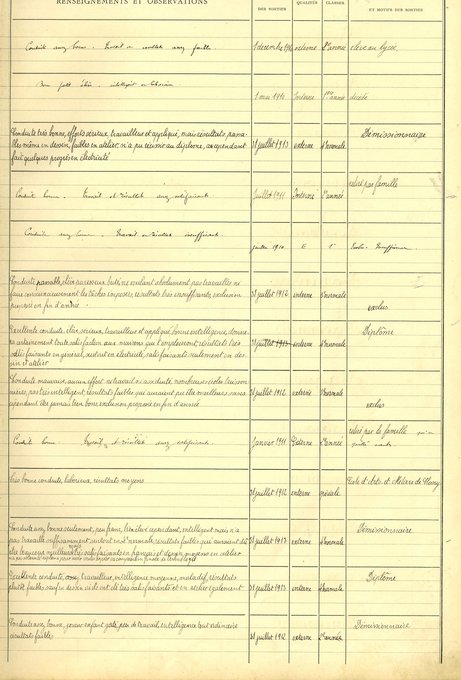 RENSEIGNEMENTS ET OBSERVATIONS
DES SORTIES
QUALITÉS
CLASSES
ET MOTIFS DES SORTIES
Conduite assez bonne. Travail et résultats assez faibles
externe
2e année
élève au lycée
Bon petit élève, intelligent et
1 mai 1910
Interne
1ère année
décédé
Conduite très bonne, efforts sérieux, travailleur et appliqué, mais résultats passa-
bles même en dessin, faibles en atelier, n'a pu réussir au diplôme, a cependant
fait quelques progrès en électricité
31 juillet 1913
externe
Normale
Démissionnaire
Conduite bonne. Travail et résultats assez satisfaisants
Juillet 1911
2e année
retiré par famille
Conduite assez bonne. Travail et résultats insuffisants
juillet 1910
E
1e
Exclu. Insuffisance
Conduite passable, élève paresseux buté, ne voulant absolument pas travailler ne
résultats très insuffisants exclusion
prononcé en fin d'année
31 juillet 1912
interne
Normale
exclus
Excellente conduite, élève sérieux, travailleur et appliqué, bonne intelligence, donne-
ra certainement toute satisfaction aux maisons qui l'emploieront, résultats très
satisfaisants en général, surtout en électricité, satisfaisants seulement en des-
sin et atelier
31 juillet 1913
externe
Normale
Diplôme
Conduite mauvaise, aucun effort ni travail ni assiduité, nombreuses
pas très intelligent, résultats faibles qui auraient pu être meilleurs, sans
cependant être jamais bien bons exclusion proposée en fin d'année
31 juillet 1912
externe
Normale
exclus
Conduite bonne. Travail et résultats assez satisfaisants
Janvier 1911
2e année
retiré par la famille
Très bonne conduite, laborieux, résultats moyens
31 juillet 1912
interne
spéciale
École d'Arts et Métiers de Cluny
Conduite assez bonne seulement, peu franc, intelligent mais n'a
pas travaillé suffisamment surtout en 3e normale résultats faibles qui auraient dû
être beaucoup meilleurs très satisfaisants en français et dessin, moyens en atelier
31 juillet 1913
interne
Normale
Démissionnaire
Excellente conduite, assez travailleur, intelligence moyenne, maladif, résultats
plutôt faibles sauf en dessin où ils ont été très satisfaisants et en atelier également
31 juillet 1913
interne
Normale
Diplôme
Conduite assez bonne, jeune enfant gâté, peu de travail, intelligence tout ordinaire
résultats faibles
31 juillet 1912
externe
2e année
Démissionnaire